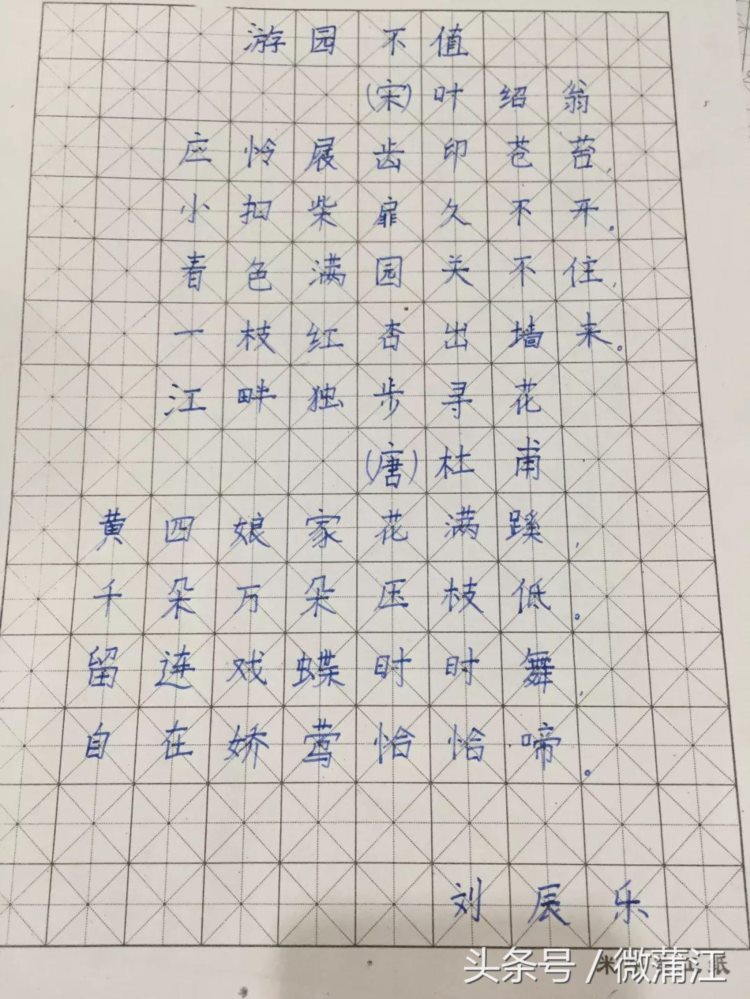 游园不值
(宋)叶绍翁
应怜屐齿印苍苔,
小扣柴扉久不开。
春色满园关不住,
一枝红杏出墙来。
江畔独步寻花
(唐)杜甫
黄四娘家花满蹊,
千朵万朵压枝低。
留连戏蝶时时舞,
自在娇莺恰恰啼。
刘辰乐
头条号/微蒲江